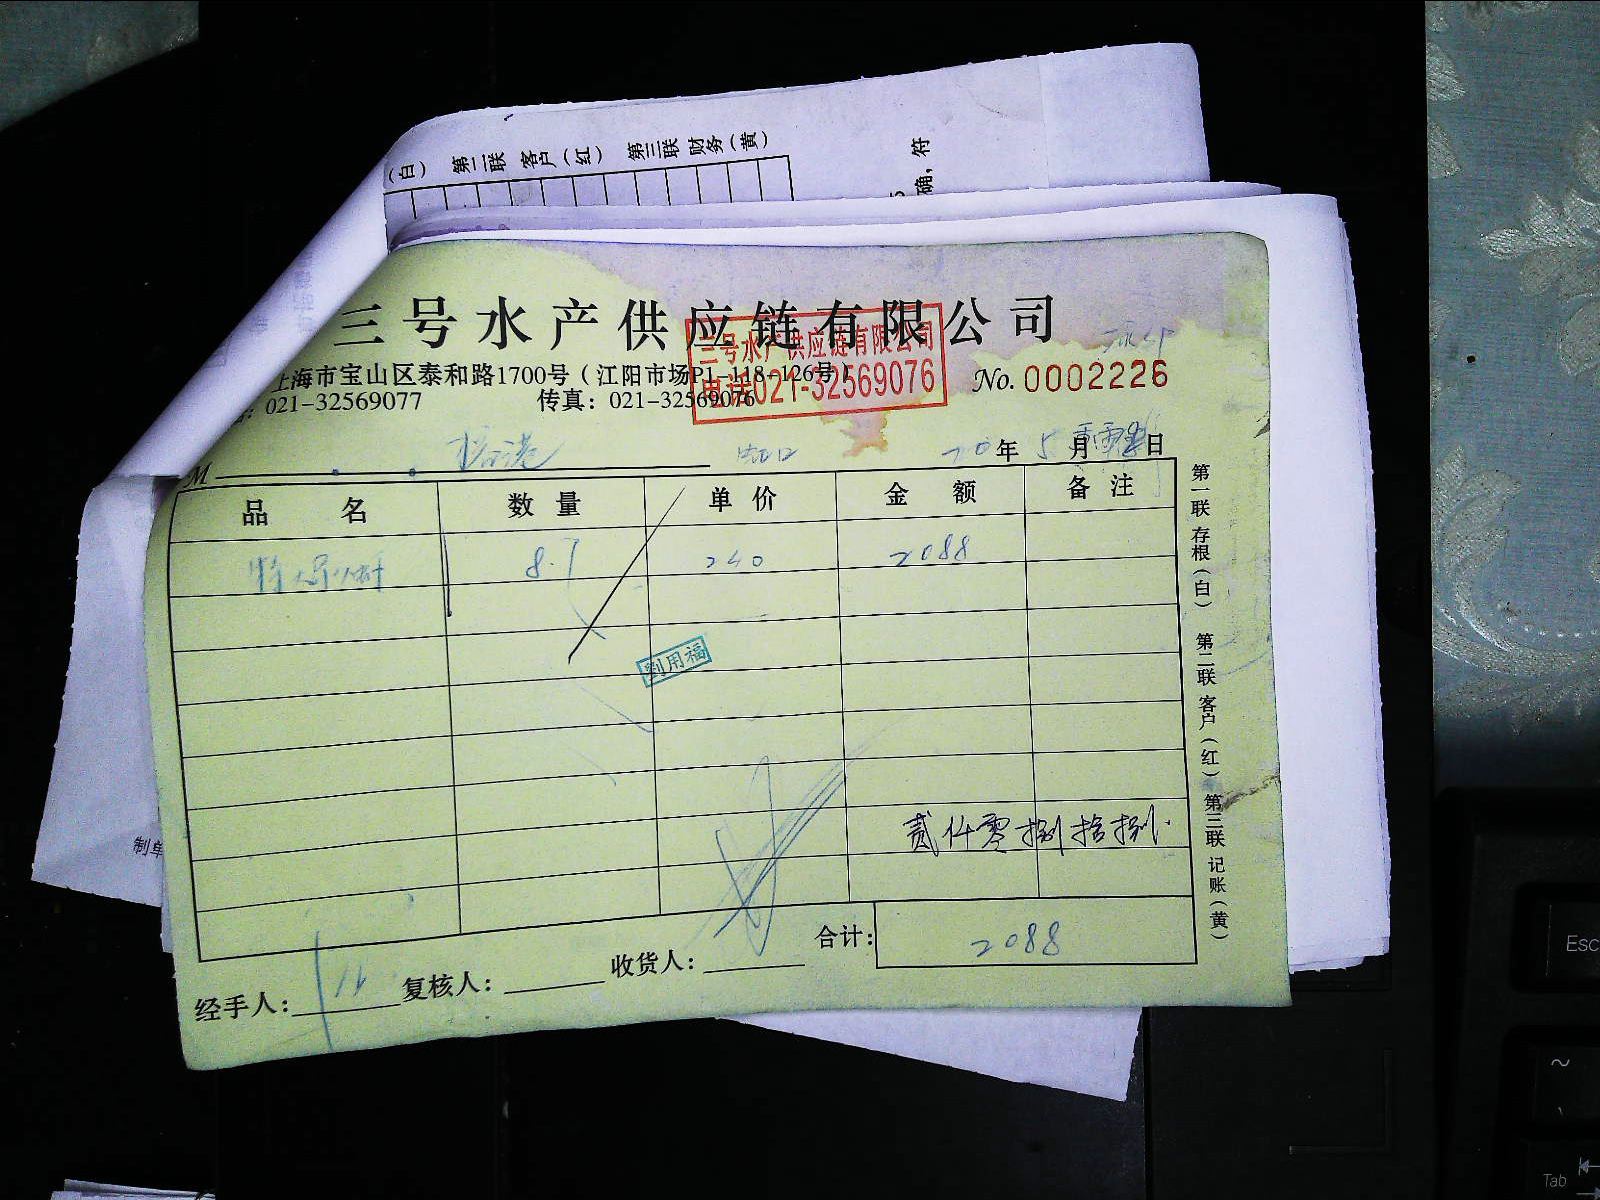 (白) 第二联 客户(红) 第三联 财务(黄)
确,符
三号水产供应链有限公司
三号水产供应链有限公司
电话021-32569076
上海市宝山区泰和路1700号(江阳市场P1-118-126号)
No. 0002226
021-32569077 传真: 021-32569076
M
20年 5月 日
品 名 数 量 单 价 金 额 备 注
8.7 240 2088
刘用福
贰仟零捌拾捌
合计: 2088
经手人: 复核人: 收货人:
第一联 存根(白) 第二联 客户(红) 第三联 记账(黄)
制单
Esc
~
Tab